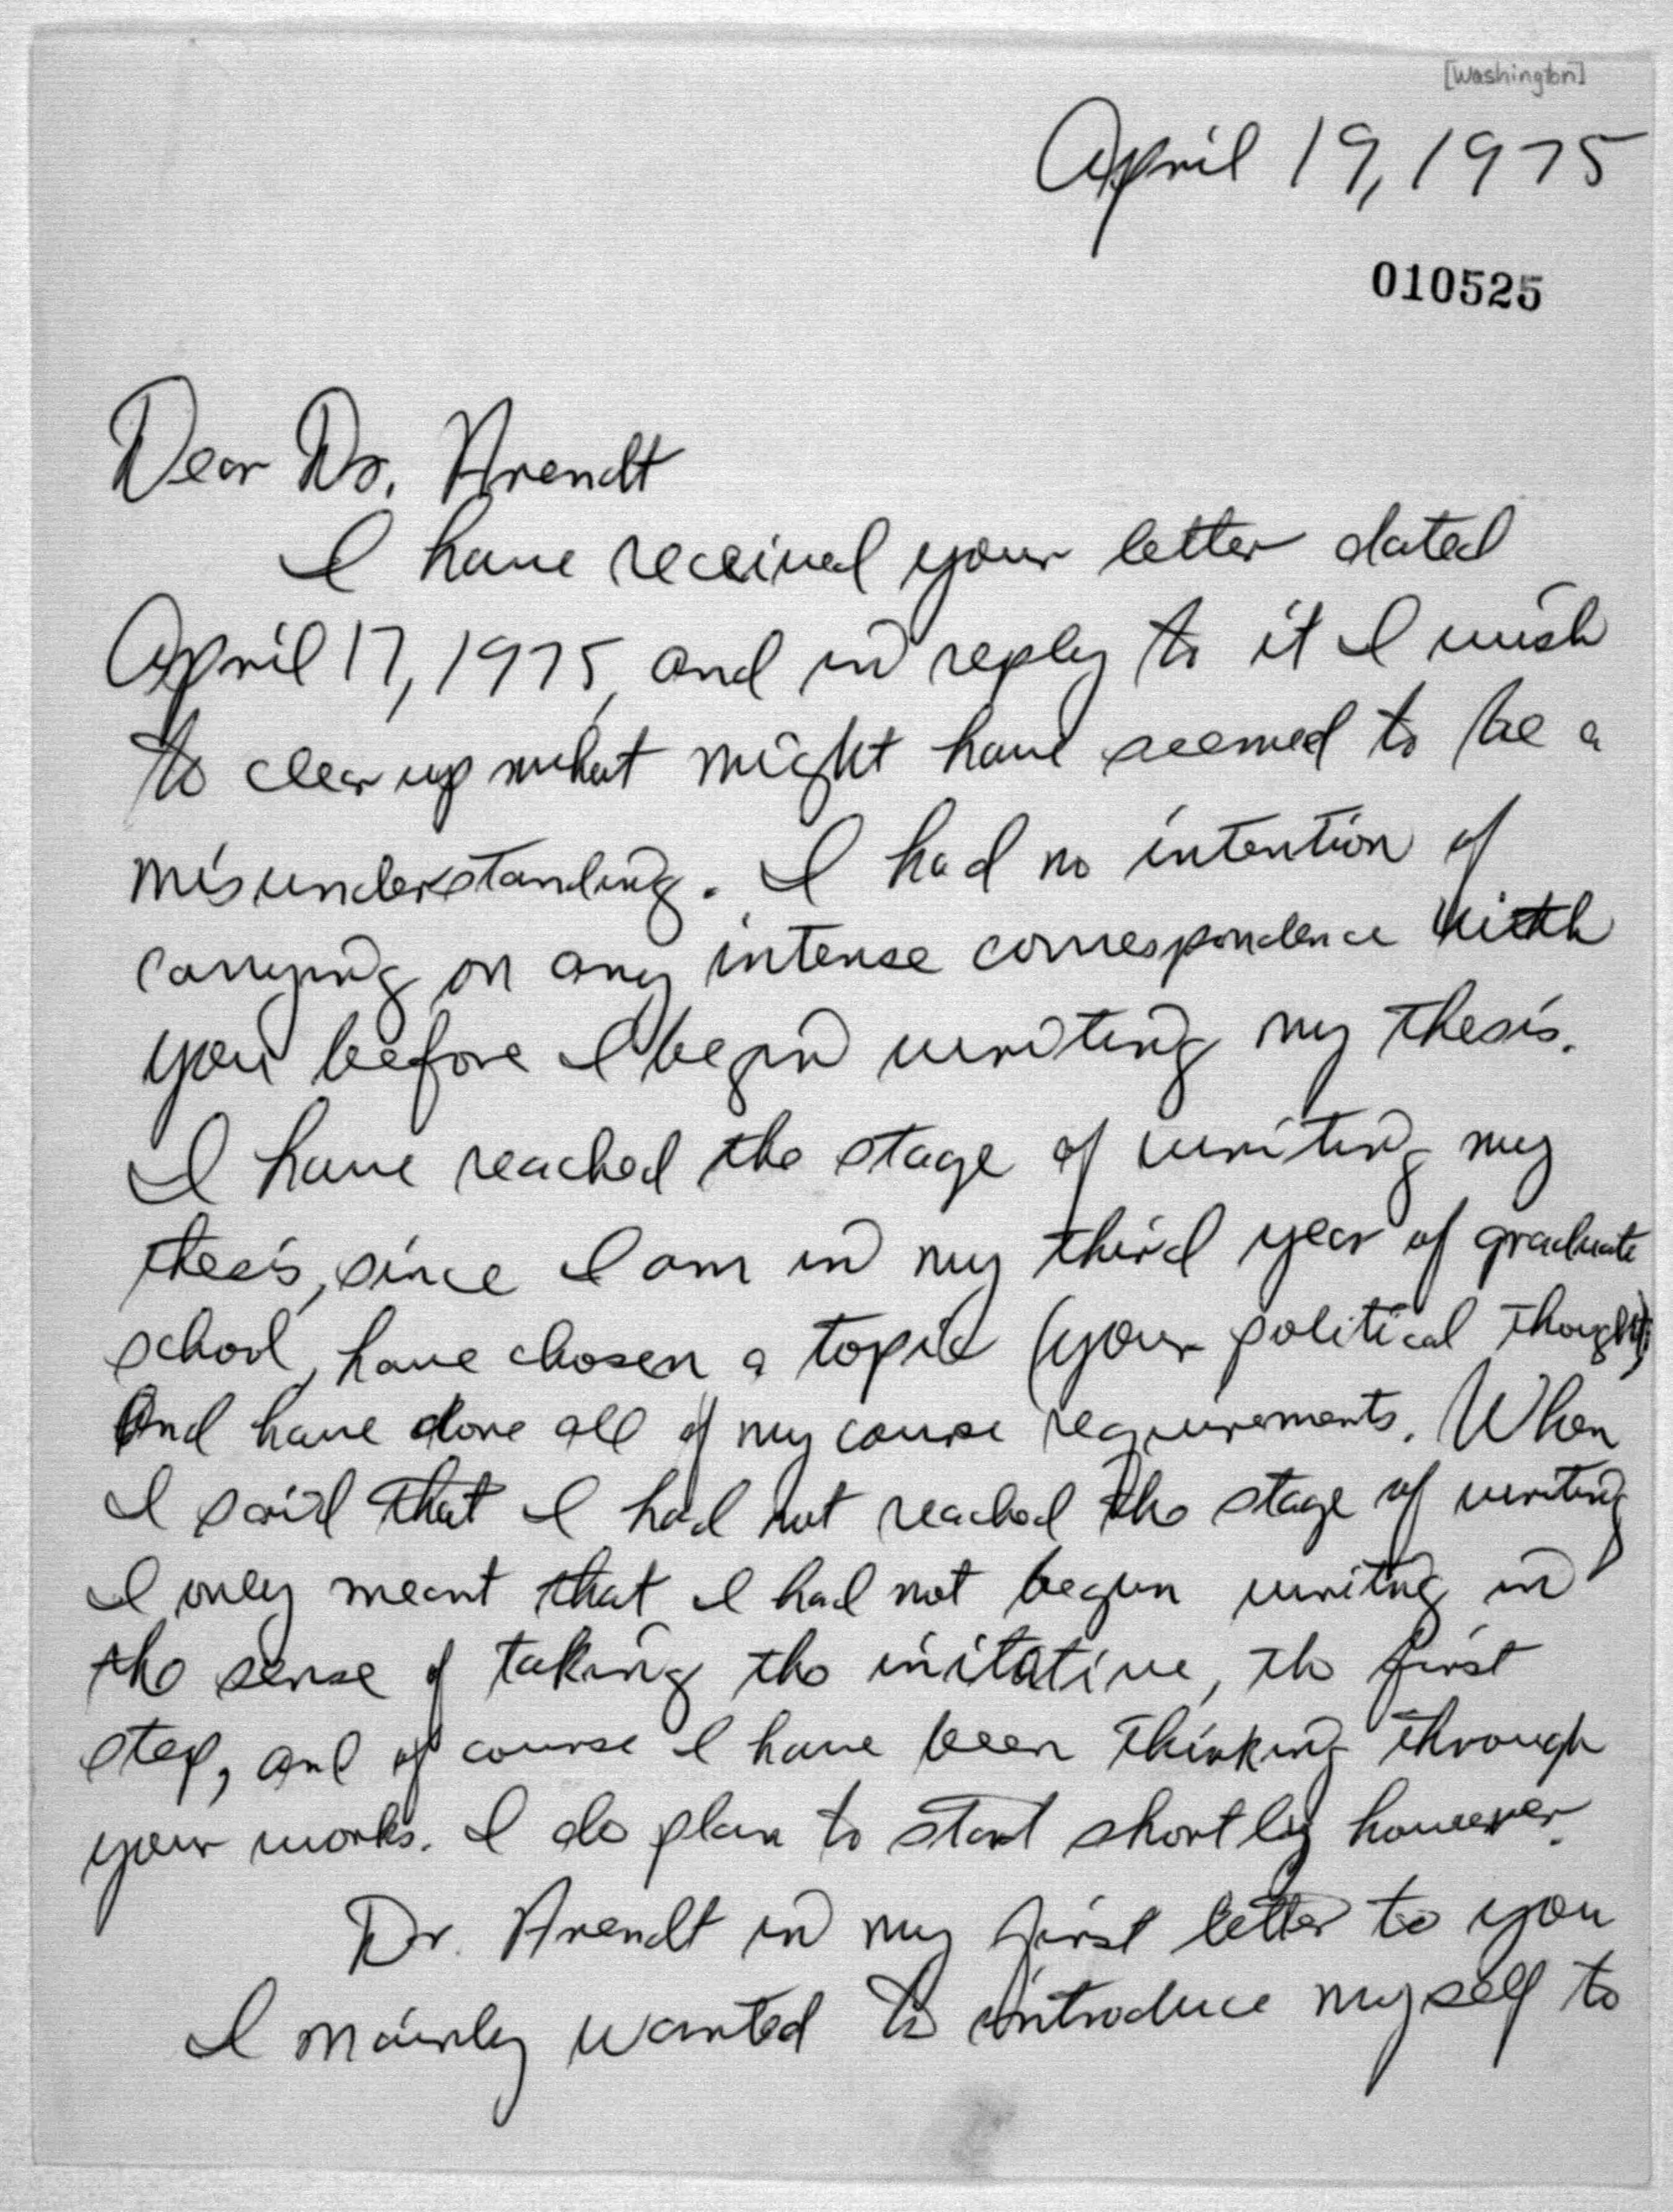 [Washington]
April 19, 1975
010525
Dear Dr. Arendt
I have received your letter dated
April 17, 1975, and in reply to it I wish
to clear up what might have seemed to be a
misunderstanding. I had no intention of
carrying on any intense correspondence with
you before I begin writing my thesis.
I have reached the stage of writing my
thesis, since I am in my third year of graduate
school, have chosen a topic (your political thought)
and have done all of my course requirements. When
I said that I had not reached the stage of writing
I only meant that I had not begun writng in
the sense of taking the initative, the first
step, and of course I have been thinking through
your works. I do plan to start shortly however.
Dr. Arendt in my first letter to you
I mainly wanted to introduce myself to